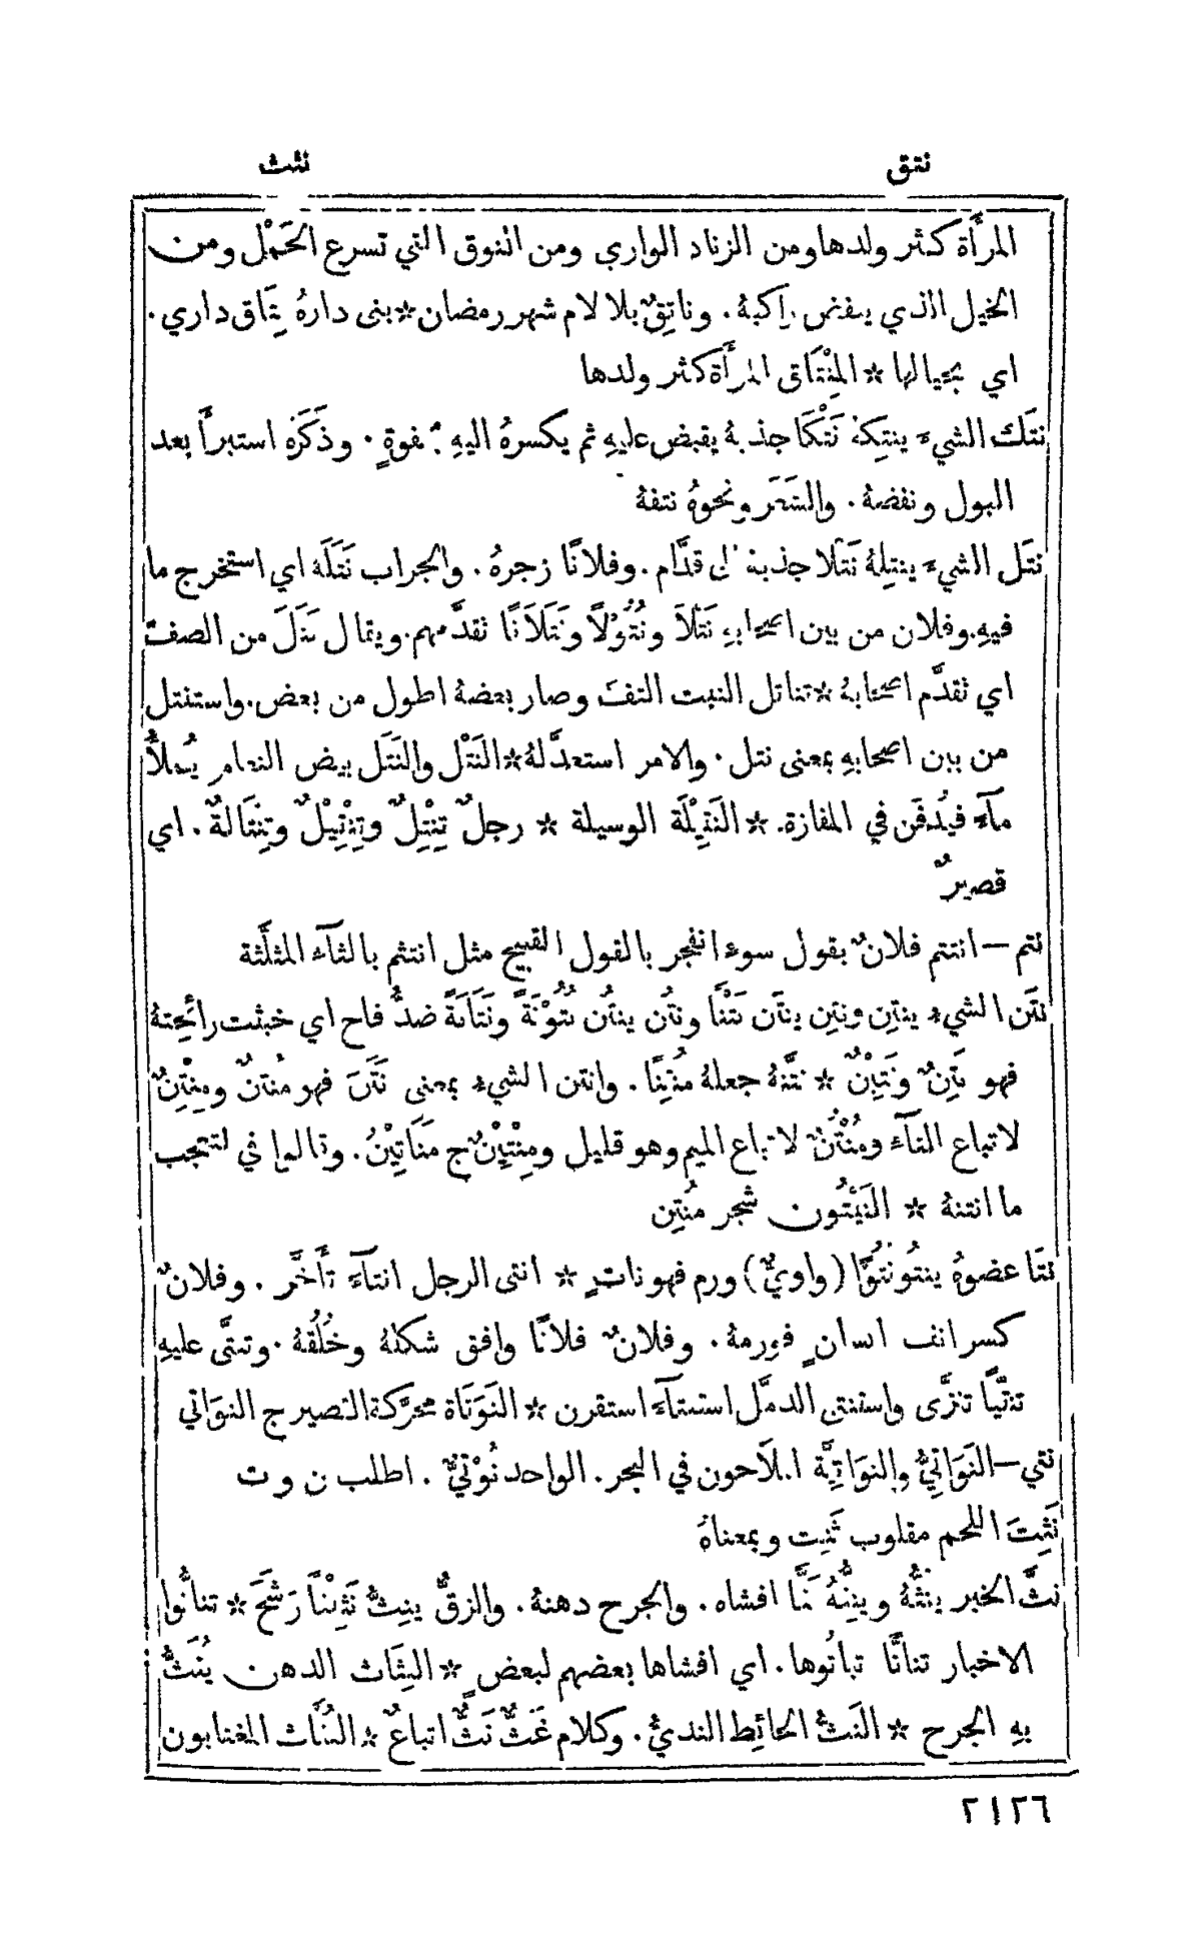 نتق
نثث
المرأَة كثر ولدها ومن الزناد الواري ومن النوق التي تسرع الحَمْل ومن
الخيل الذي ينفض راكبهُ . وناتِقٌ بلا لام شهر رمضان * بنى دارهُ نِتَاق داري .
اي بحيالها * المِنْتَاق المرأَة كثر ولدها
نتَك الشيءَ ينتِكهُ نَتْكًا جذبهُ يقبض عليهِ ثم يكسرهُ اليهِ بجفوةٍ . وذَكَرَه استبرأَ بعد
البول ونفضهُ . والشَعَر ونحوهُ نتفهُ
نتَل الشيءَ ينتِلهُ نَتْلًا جذبهُ الى قدَّام . وفلانًا زجرهُ . والجراب نَتَلَه اي استخرج ما
فيهِ . وفلان من بين اصحابهِ نَتْلًا ونُتُوْلًا ونَتَلَانًا تقدَّمهم . ويقال نتَلَ من الصفّ
اي تقدَّم اصحابهُ * تناتل النبت التفَّ وصار بعضهُ اطول من بعض . واستنتل
من بين اصحابهِ بمعنى نتل . والامر استعدَّ لهُ * النَتْل والنَتَل بيض النعام يُملأُ
مآءً فيُدفَن في المفازة . * النَتِيْلَة الوسيلة * رجلٌ تِنْتِلٌ وتِنْتِيْلٌ وتِنْتَالةٌ . اي
قصيرٌ
نتم — انتتم فلانٌ بقول سوءٍ انفجر بالقول القبيح مثل انتثم بالثآء المثلَّثة
نتَن الشيءُ ينتِن ونتِن ينتَن نَتْنًا ونتُن ينتُن نُتُوْنَةً ونَتَانَةً ضدُّ فاح اي خبثت رائحتهُ
فهو نَتِنٌ ونَتِيْنٌ * نتَّنهُ جعلهُ مُنْتِنًا . وانتن الشيءُ بمعنى نَتَنَ فهو مُنتِنٌ ومِنْتِنٌ
لاتباع التآء ومُنْتُنٌ لاتباع الميم وهو قليل ومِنْتِيْنٌ ج مَنَاتِيْنُ . وقالوا في التعجب
ما انتنهُ * النَيْتُون شجر مُنتِن
نتَا عضوهُ ينتُو نُتُوًّا (واويٌّ) ورم فهو ناتٍ * انتى الرجل انتآءً تأَخَّر . وفلانٌ
كسر انف انسانٍ فورمهُ . وفلانٌ فلانًا وافق شكلهُ وخُلُقهُ . وتنتَّى عليهِ
تنتّيًا تنزَّى واستنتى الدمَّل استنتآءً استقرن * النَوَتَاة محرَّكة القصير ج النوَاتي
نتي — النَوَاتِيُّ والنوَاتِيَّة الملَّاحون في البحر . الواحد نُوْتيٌّ . اطلب ن و ت
نَثِتَ اللحم مقلوب ثَنِت وبمعناهُ
نثَّ الخبر ينُثُّهُ وينِثُّهُ نَثًّا افشاه . والجرح دهنهُ . والزقُّ ينِثُّ نَثِيْثًا رَشَحَ * تناثُّوا
الاخبار تناثًّا تباثُّوها . اي افشاها بعضهم لبعضٍ * النِثَاث الدهن يُنَثُّ
بهِ الجرح * النَثُّ الحائِط النديُّ . وكلام غَثٌّ نَثٌّ اتباعٌ * النُثَّاث المغتابون
٢١٢٦